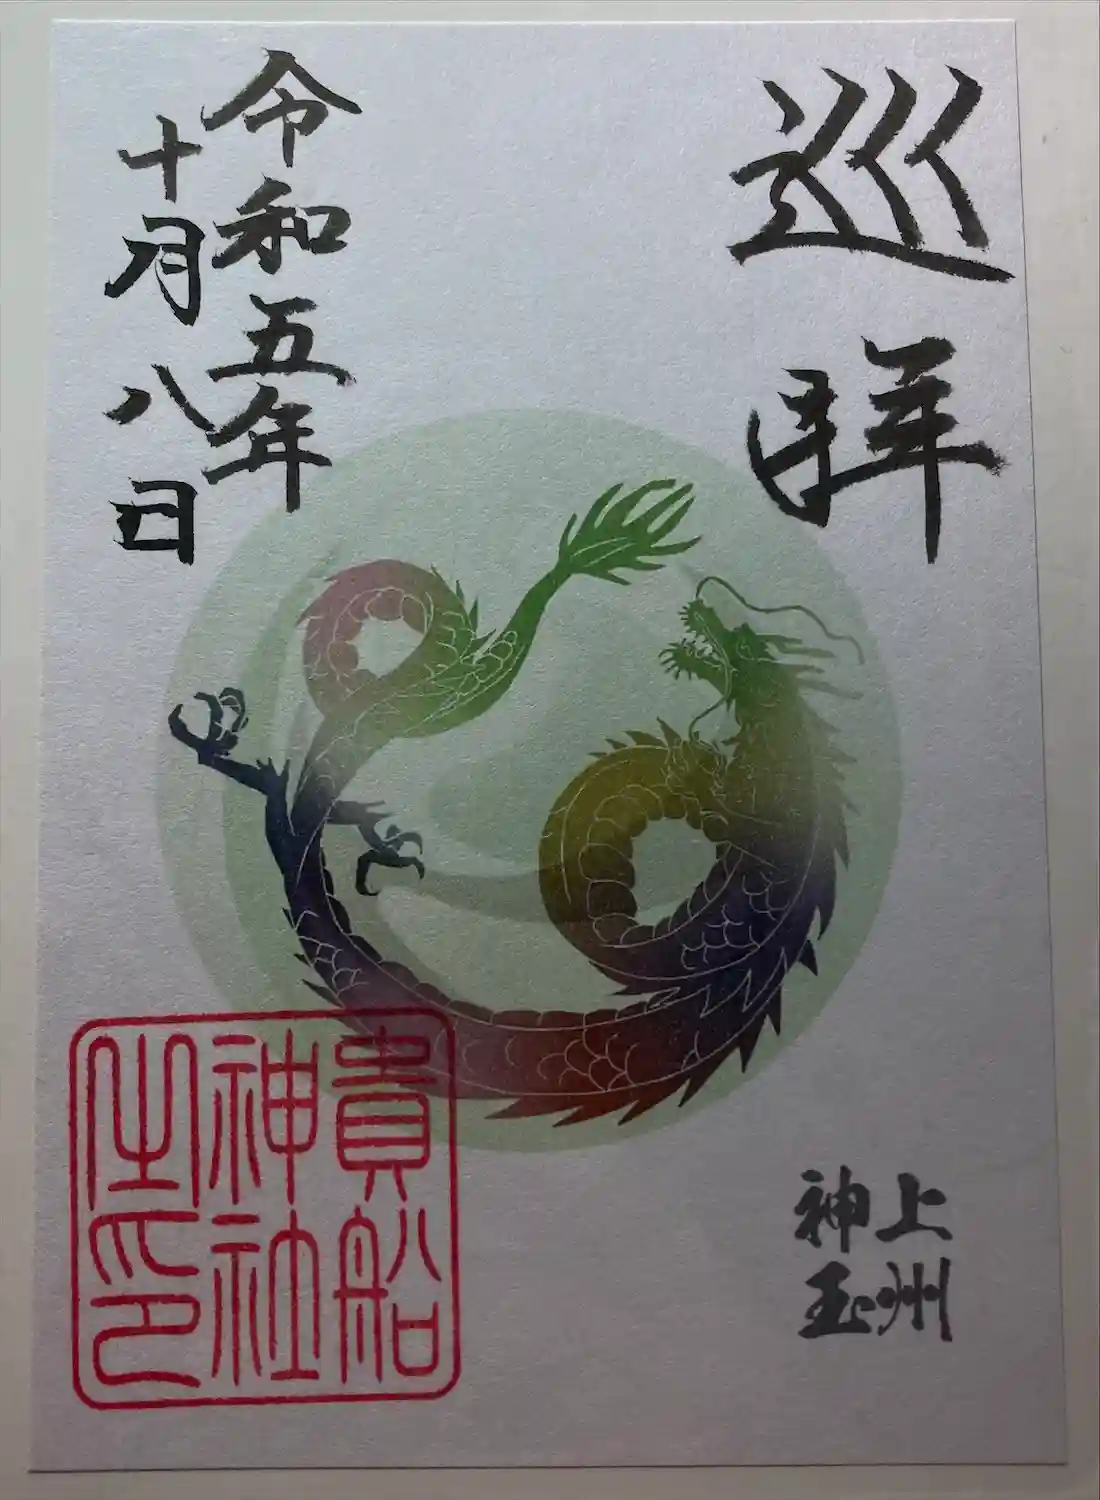 巡拝
令和五年
十月八日
上州
神玉
貴船
神社
之印